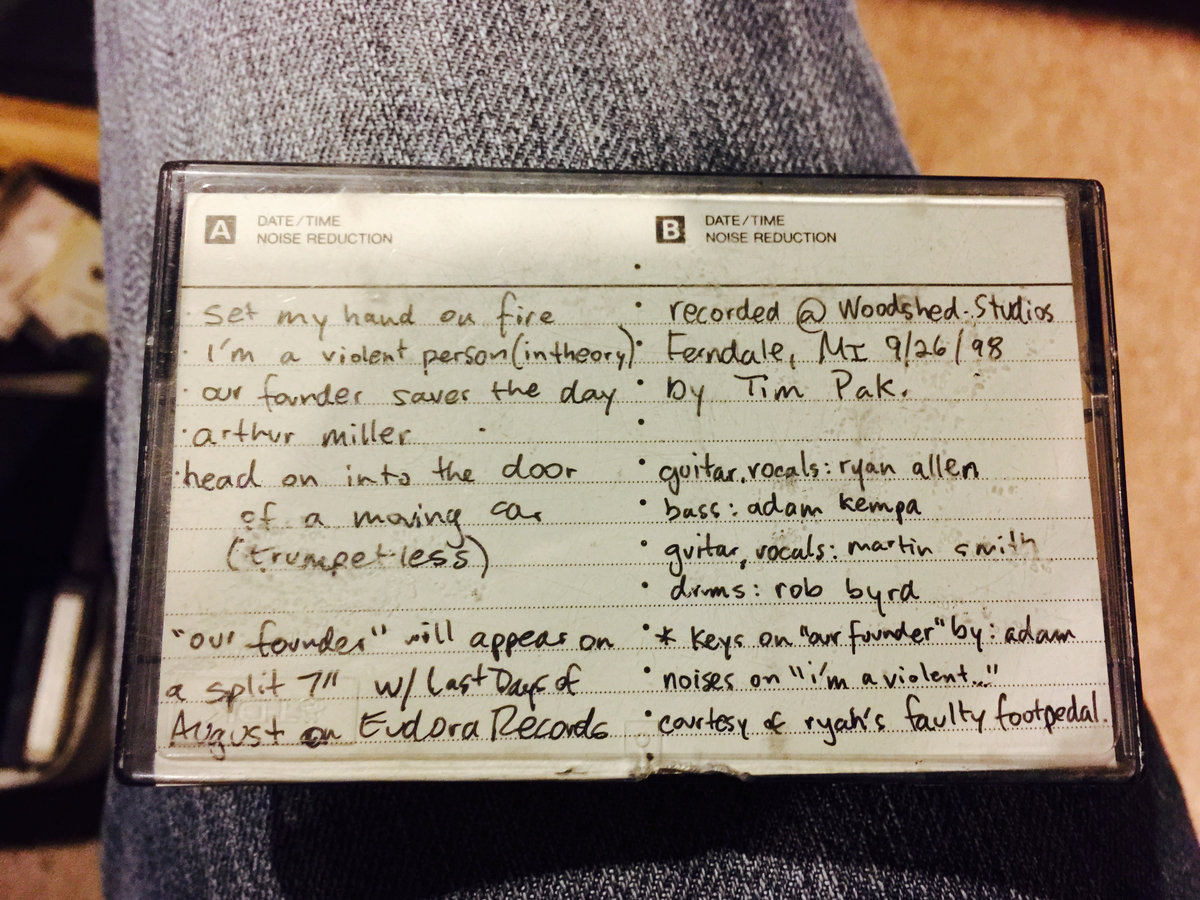 A DATE/TIME
NOISE REDUCTION
set my hand on fire
I'm a violent person (in theory)
our founder saves the day
arthur miller
head on into the door
of a moving car
(trumpetless)
"our founder" will appear on
a split 7" w/ Last Days of
August on Eudora Records
B DATE/TIME
NOISE REDUCTION
recorded @ Woodshed Studios
Ferndale, MI 9/26/98
by Tim Pak.
guitar, vocals: ryan allen
bass: adam kempa
guitar, vocals: martin smith
drums: rob byrd
* keys on "our founder" by: adam
noises on "i'm a violent..."
courtesy of ryan's faulty footpedal.